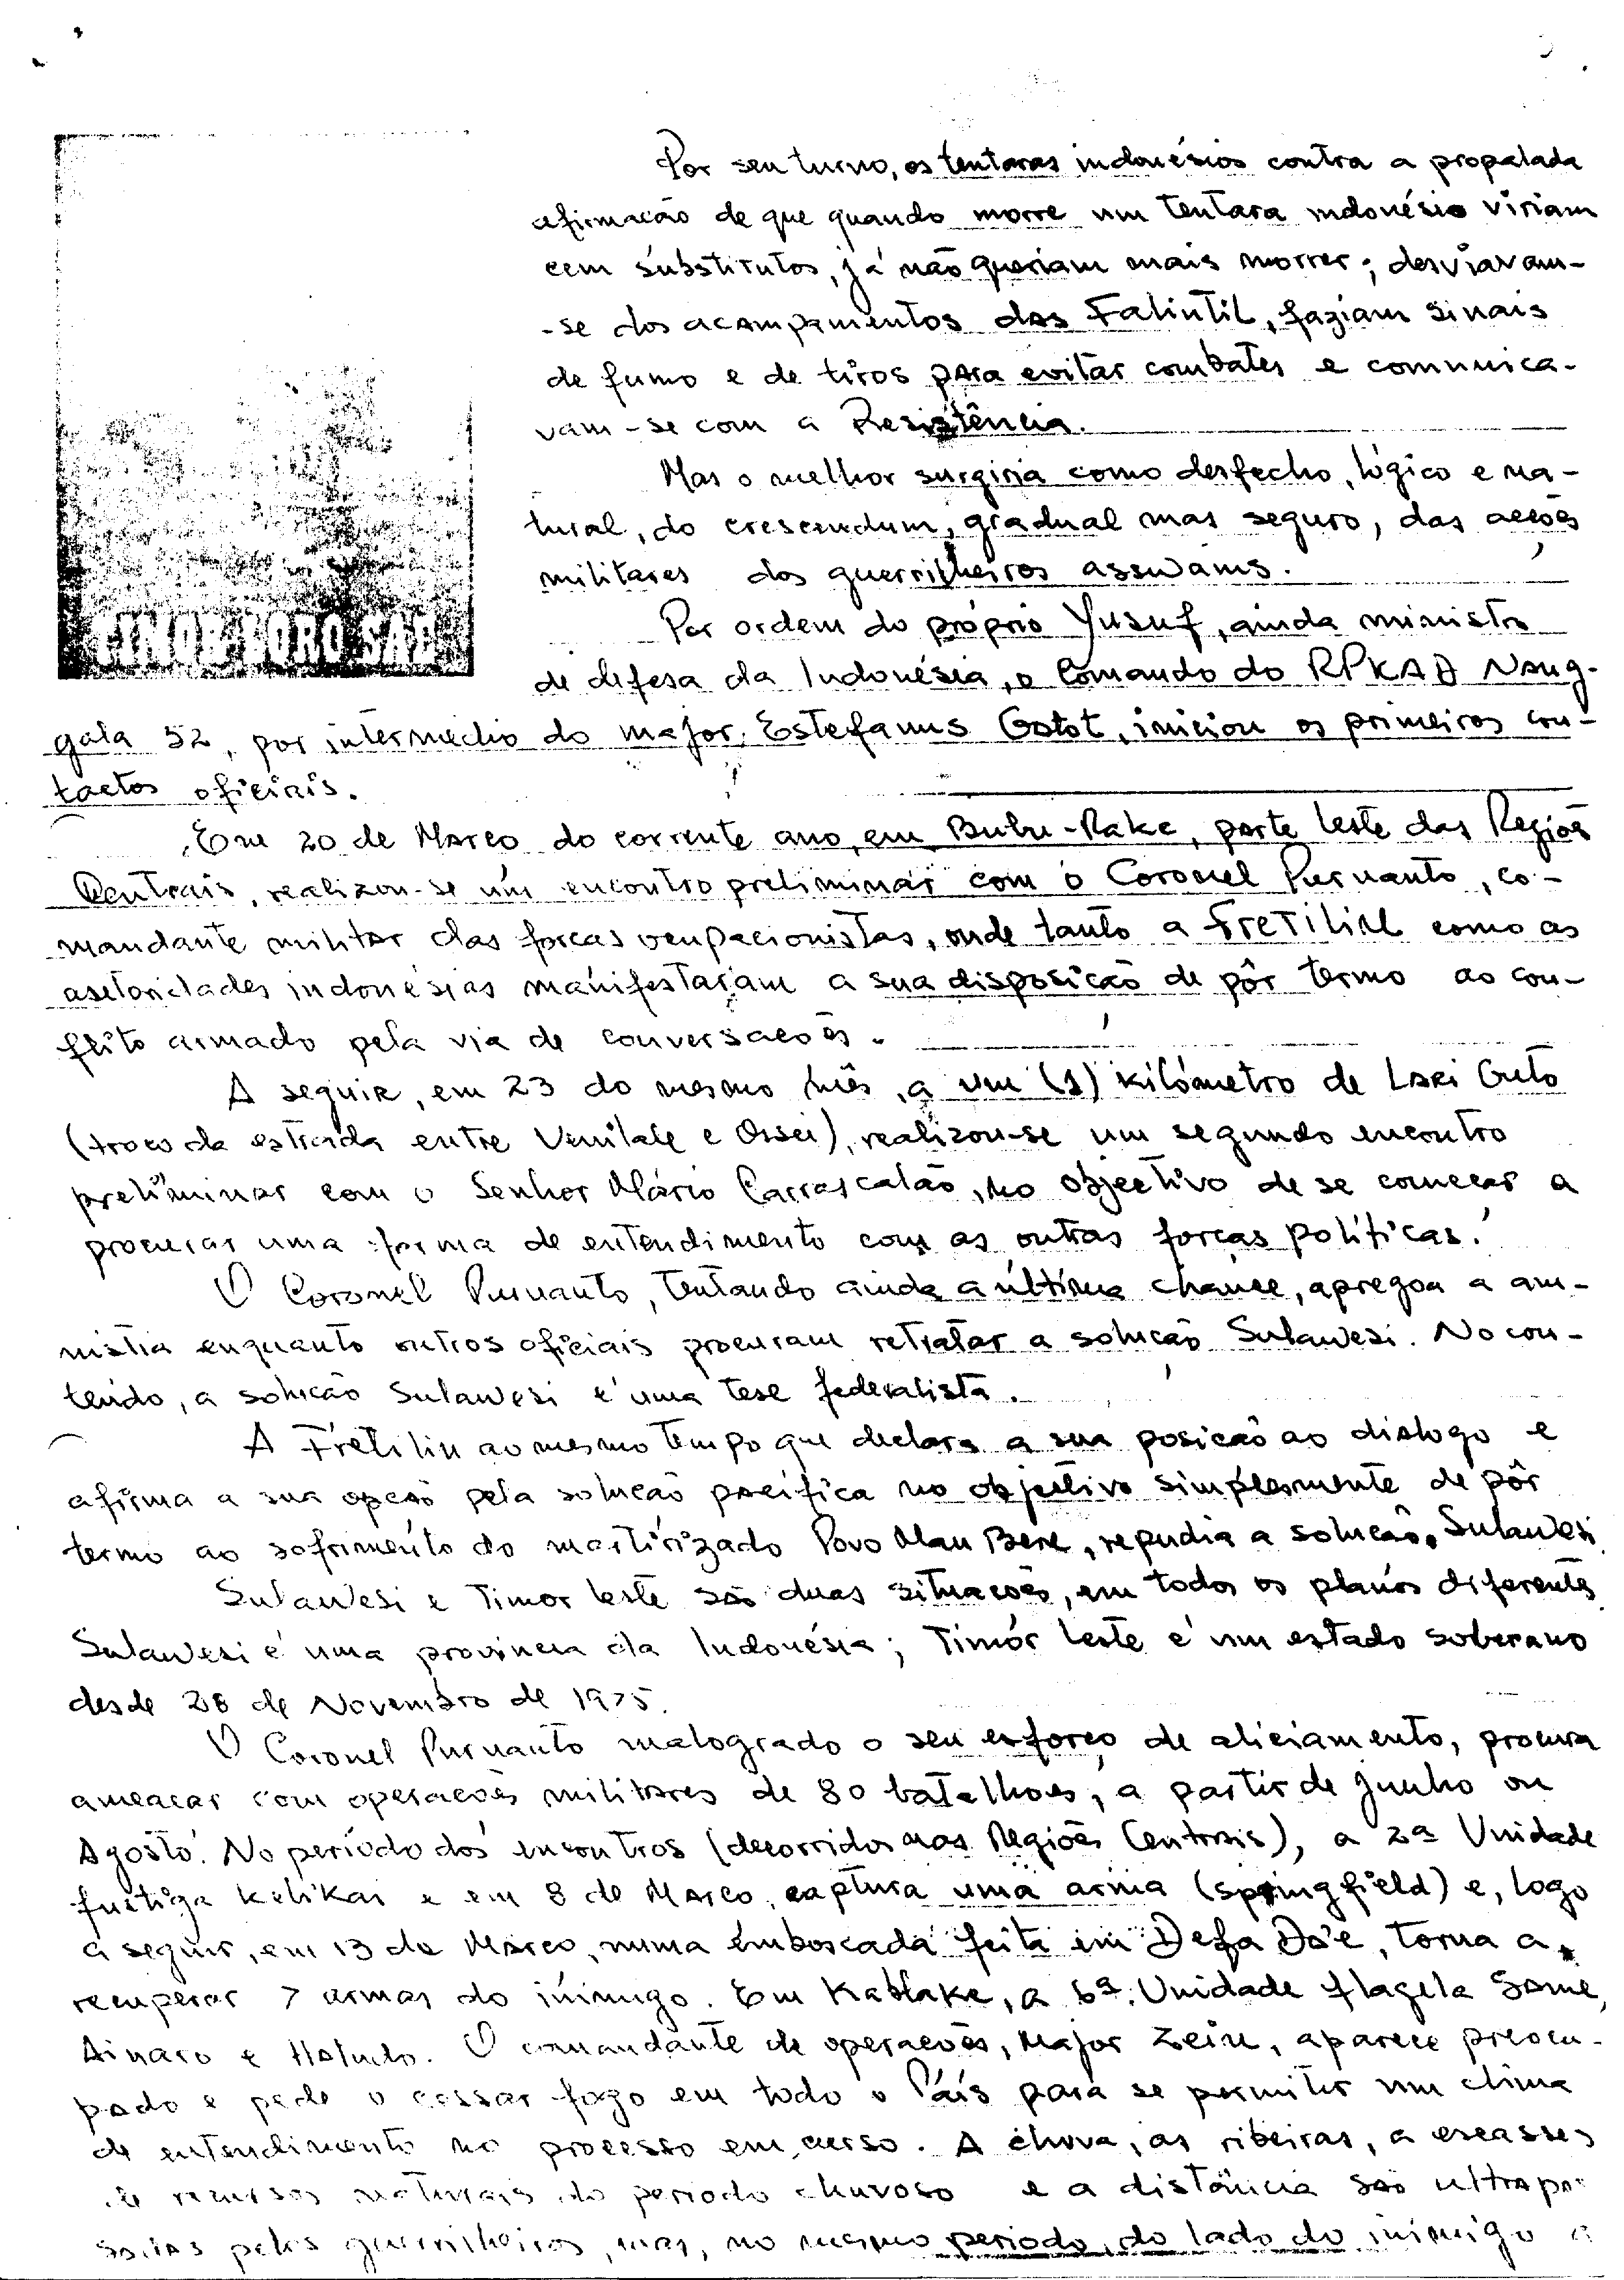 Por seu turno, os tentaras indonésios contra a propalada
afirmação de que quando morre um tentara indonésio viriam
cem substitutos, já não queriam mais morrer; desviavam-
-se dos acampamentos das Falintil, faziam sinais
de fumo e de tiros para evitar combates e comunica-
vam-se com a Resistência.
Mas o melhor surgiria como desfecho, lógico e na-
tural, do crescendum, gradual mas seguro, das acções
militares dos guerrilheiros assuwains.
Por ordem do próprio Yusuf, ainda ministro
de defesa da Indonésia, o Comando do RPKAD Nang-
TIMOR LORO SAE
gala 52, por intermédio do major Estefanus Gatot, iniciou os primeiros con-
tactos oficiais.
Em 20 de Março do corrente ano, em Bubu-Rake, parte leste das Regiões
Centrais, realizou-se um encontro preliminar com o Coronel Purwanto, co-
mandante militar das forças ocupacionistas, onde tanto a Fretilin como as
autoridades indonésias manifestaram a sua disposição de pôr termo ao con-
flito armado pela via de conversações.
A seguir, em 23 do mesmo mês, a um (1) kilómetro de Lari Guto
(troço da estrada entre Venilale e Ossu), realizou-se um segundo encontro
preliminar com o Senhor Mário Carrascalão, no objectivo de se começar a
procurar uma forma de entendimento com as outras forças políticas.
O Coronel Purwanto, tentando ainda a última chance, apregoa a am-
nistia enquanto outros oficiais procuram retratar a solução Sulawesi. No con-
teúdo, a solução Sulawesi é uma tese federalista.
A Fretilin ao mesmo tempo que declara a sua posição ao dialogo e
afirma a sua opção pela solução pacífica no objectivo simplesmente de pôr
termo ao sofrimento do martirizado Povo Mau Bere, repudia a solução Sulawesi.
Sulawesi e Timor leste são duas situações, em todos os planos diferentes
Sulawesi é uma provincia da Indonésia; Timor leste é um estado soberano
desde 28 de Novembro de 1975.
O Coronel Purwanto malogrado o seu esforço de aliciamento, procura
ameaçar com operações militares de 80 batalhões, a partir de Junho ou
Agosto. No período dos encontros (decorridos nas Regiões Centrais), a 2ª Unidade
fustiga Kelikai e em 8 de Março, captura uma arma (springfield) e, logo
a seguir, em 13 de Março, numa emboscada feita em Defa Da'e, torna a
recuperar 7 armas do inimigo. Em Kablake, a 6ª Unidade flagela Same,
Ainaro e Hatudo. O comandante de operações, Major Zein, aparece preocu-
pado e pede o cessar fogo em todo o País para se permitir um clima
de entendimento no processo em curso. A chuva, as ribeiras, a escasses
de recursos naturais do período chuvoso e a distância são ultrapas-
sadas pelos guerrilheiros, mas, no mesmo período, do lado do inimigo a